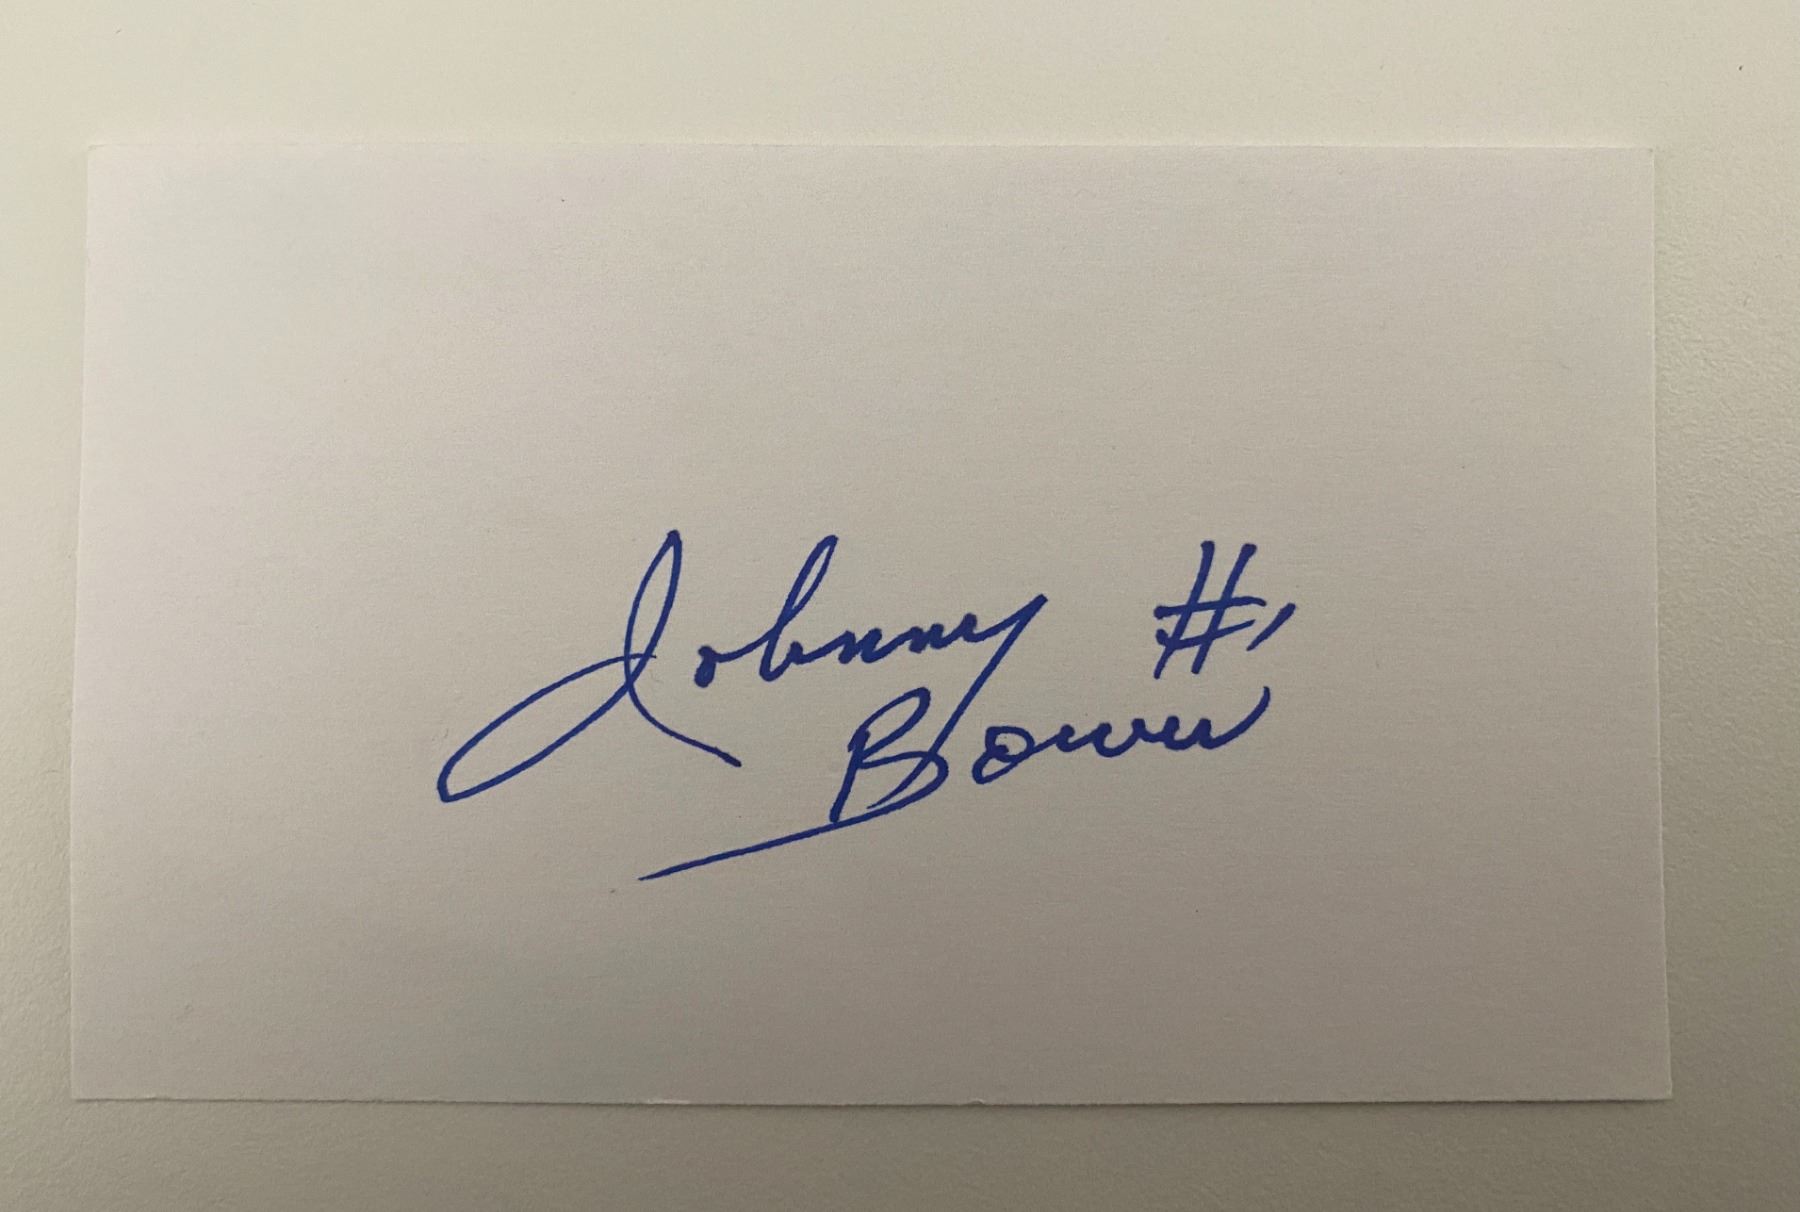 Johnny #1
Bower